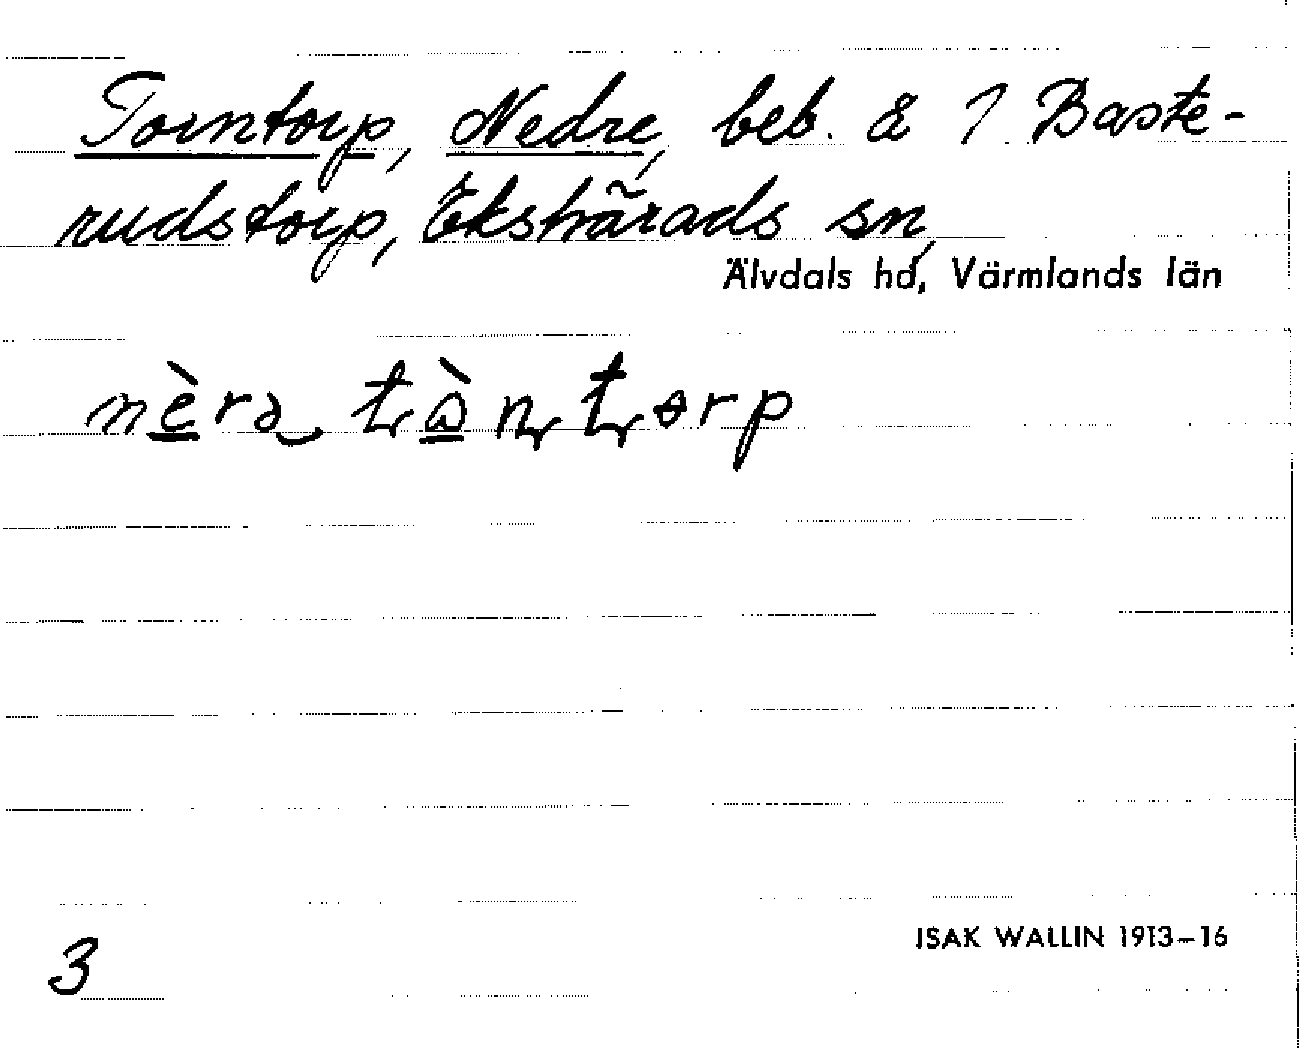 Torntorp, Nedre, beb. å 1 Baste-
rudstorp, Ekshärads sn,
Älvdals hd, Värmlands län
nèra tɷ̀n torp
ISAK WALLIN 1913–16
3